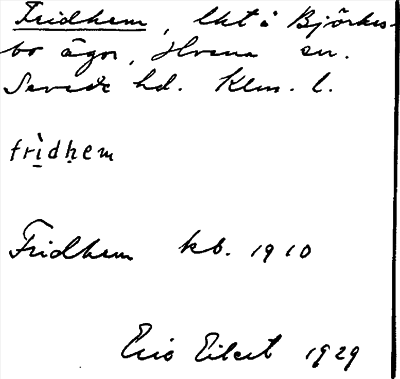 Fridhem, lht å Björkes-
bo ägor, Hvena sn.
Sevede hd. Klm. l.
frìdḥem
Fridhem kb. 1910
Eric Eilert 1929